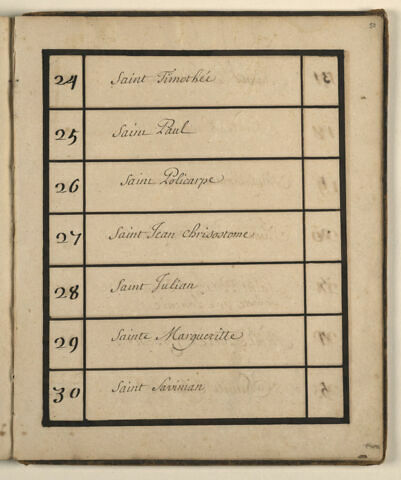 24 Saint Timothée
25 Saint Paul
26 Saint Policarpe
27 Saint Jean Chrisostome
28 Saint Julian
29 Sainte Margueritte
30 Saint Savinian